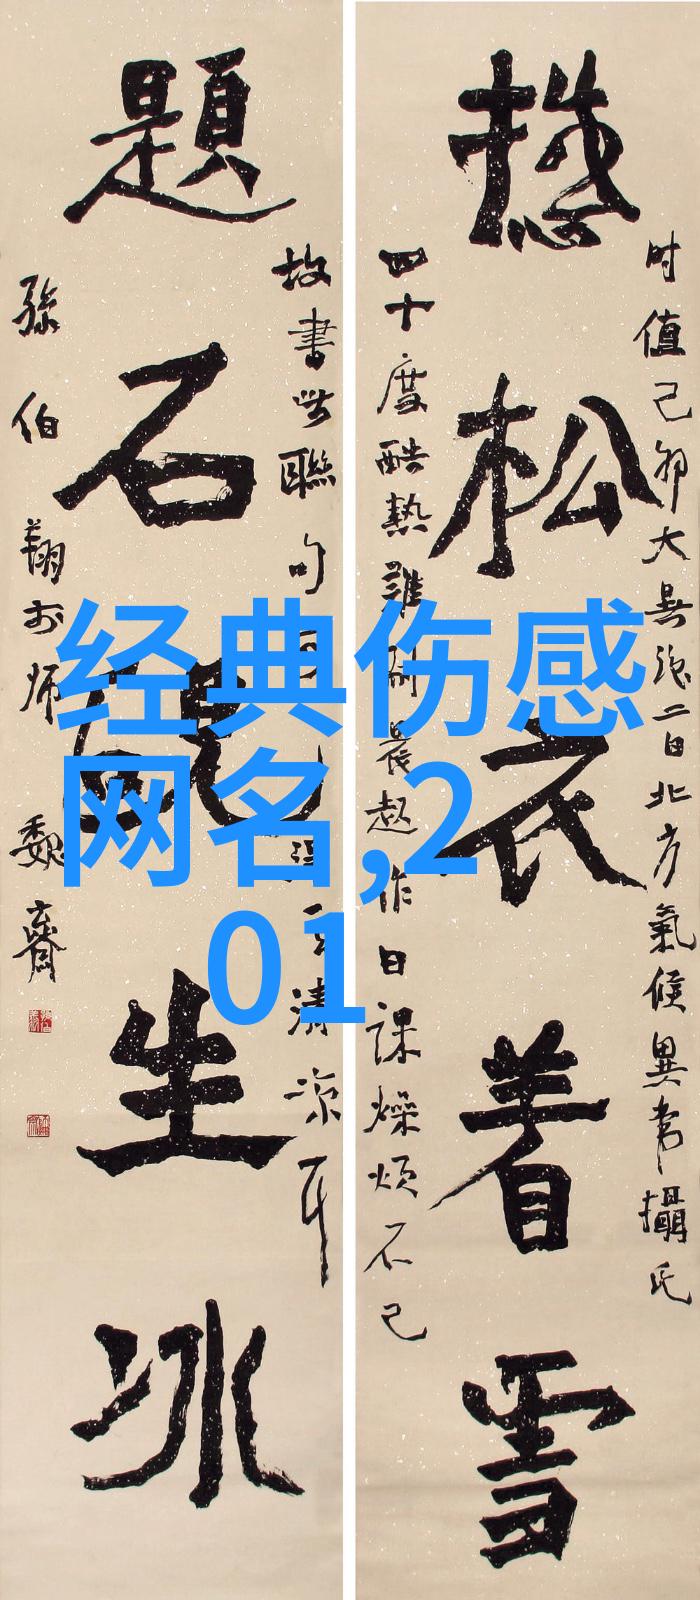 时值己卯大暑後二日北方氣候異常攝氏
松衣着雪
四十度酷熱難晨起作日課燥煩不已
故書此聯句清凉耳
題石硯生冰
孫伯翔於师魏齋
经典伤感
网名,2
01